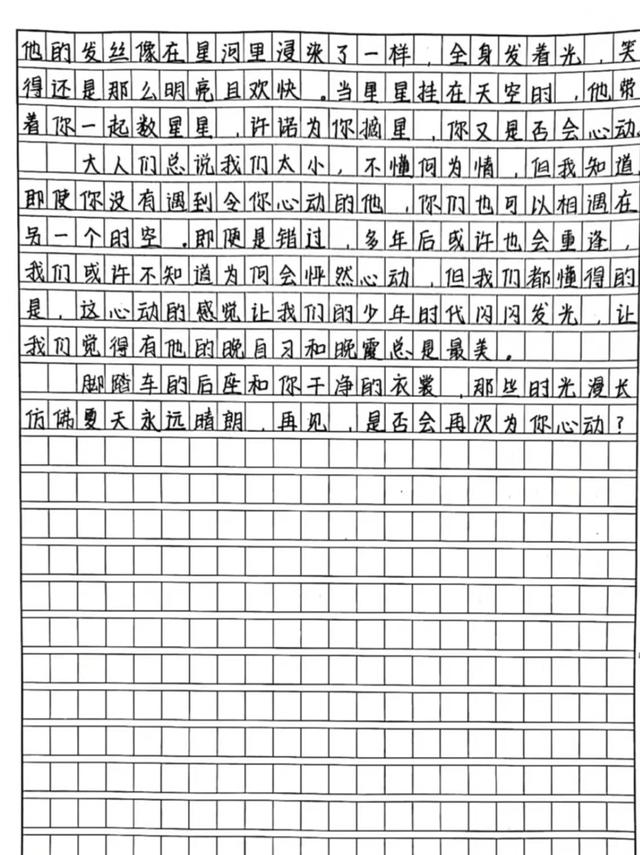 他的发丝像在星河里浸染了一样，全身发着光，笑
得还是那么明亮且欢快。当星星挂在天空时，他带
着你一起数星星，许诺为你摘星，你又是否会心动。
大人们总说我们太小，不懂何为情，但我知道，
即使你没有遇到令你心动的他，你们也可以相遇在
另一个时空。即便是错过，多年后或许也会重逢，
我们或许不知道为何会怦然心动，但我们都懂得的
是，这心动的感觉让我们的少年时代闪闪发光，让
我们觉得有他的晚自习和晚霞总是最美。
脚踏车的后座和你干净的衣裳，那些时光漫长
仿佛夏天永远晴朗，再见，是否会再次为你心动？